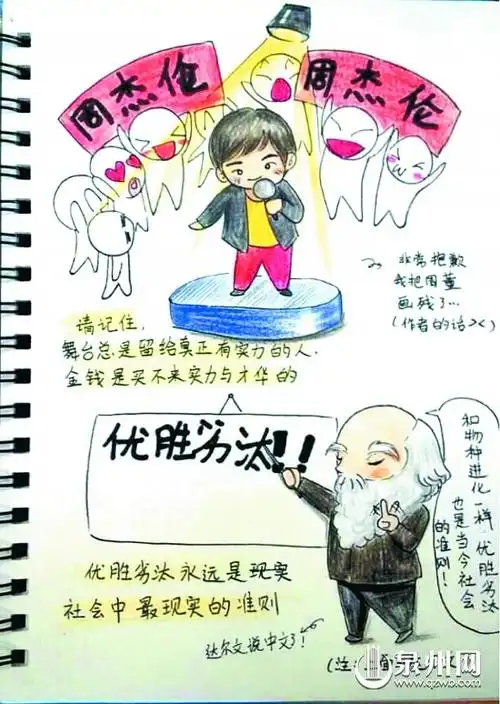 周杰伦
周杰伦
非常抱歉
我把周董
画残了...
(作者的话><)
请记住,
舞台总是留给真正有实力的人.
金钱是买不来实力与才华的
优胜劣汰!!
和物种进化
一样,优胜劣汰
也是当今社会
的准则!
优胜劣汰永远是现实
社会中最现实的准则
达尔文说中文了!
(注:
泉州网
www.qzwb.com